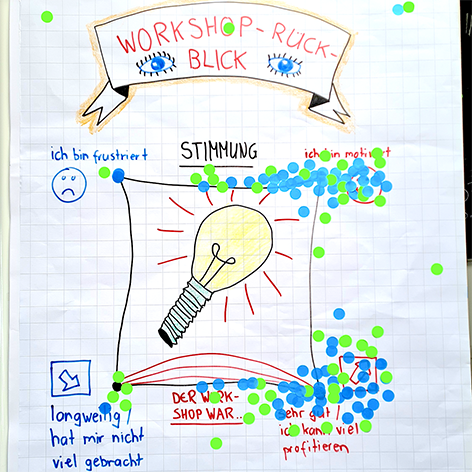 WORKSHOP-RÜCK-
BLICK
STIMMUNG
ich bin frustriert
ich bin motiviert
DER WORK-
SHOP WAR...
langweilig /
hat mir nicht
viel gebracht
sehr gut /
ich kann viel
profitieren